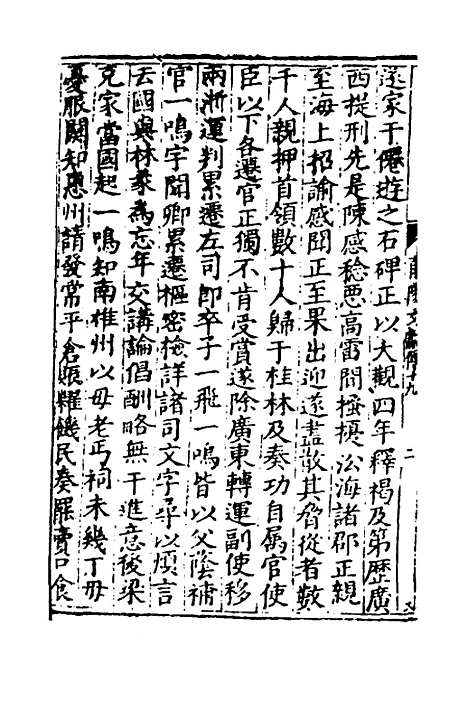 遂家于僊遊之石碑正以大觀四年釋褐及第歷廣
西提刑先是陳感稔惡高雷間搔擾沿海諸郡正親
至海上招諭感聞正至果出迎遂盡散其脅從者數
千人親押首領數十人歸于桂林及奏功自属官使
臣以下各遷官正獨不肯受賞遂除廣東轉運副使移
兩浙運判累遷左司郎卒子一飛一鳴皆以父蔭補
官一鳴字聞卿累遷樞密檢詳諸司文字尋以煩言
去國與林彖為忘年交講論倡酬略無干進意後梁
克家當國起一鳴知南雄州以母老丐祠未幾丁母
憂服闋知惠州請發常平倉賑糶饑民奏罷賣口食